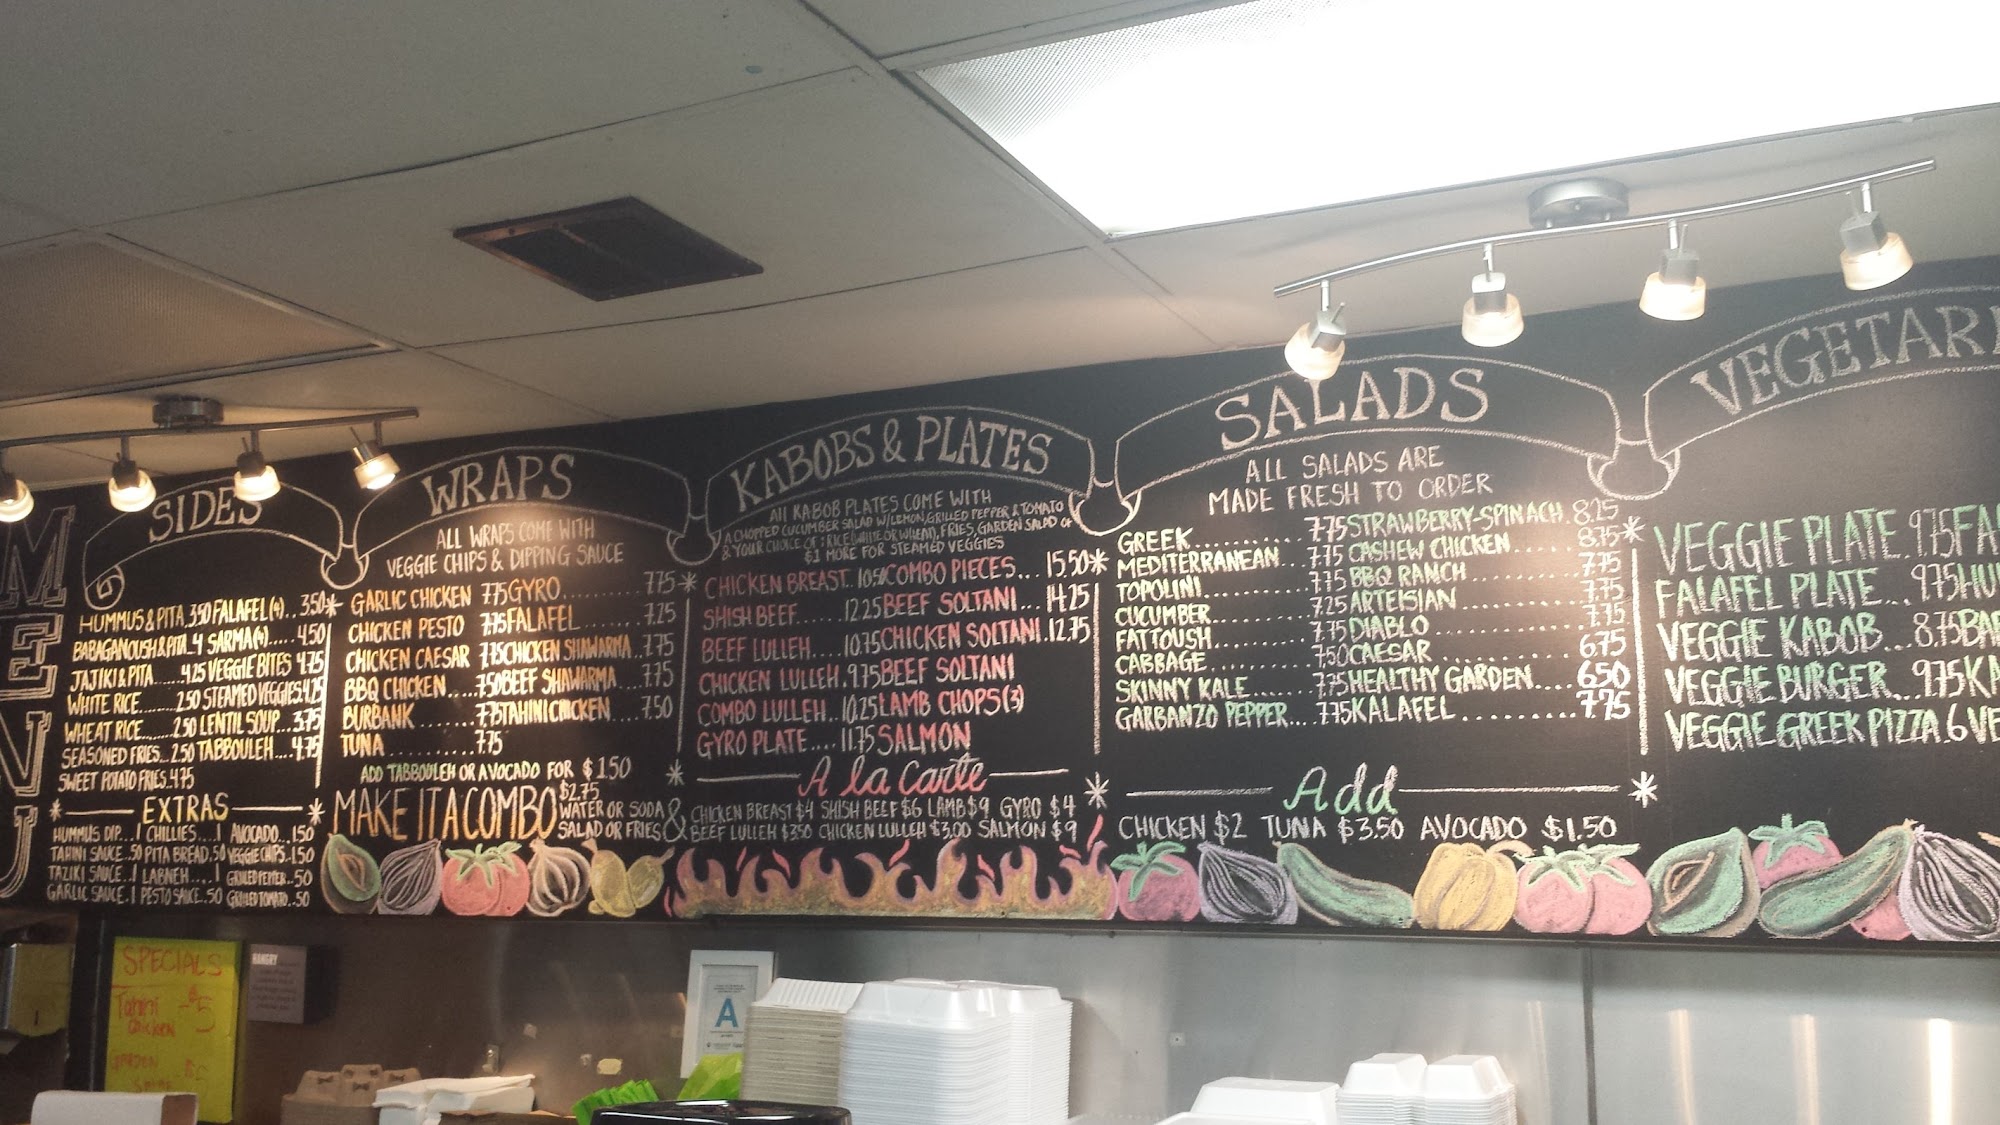 MENU
SIDES
HUMMUS & PITA. 3.50 FALAFEL(4)... 3.50
BABAGANOUSH & PITA.. 4 SARMA(4)..... 4.50
JAJIKI & PITA...... 4.25 VEGGIE BITES 4.75
WHITE RICE........ 2.50 STEAMED VEGGIES 4.25
WHEAT RICE....... 2.50 LENTIL SOUP... 3.75
SEASONED FRIES... 2.50 TABBOULEH.... 4.75
SWEET POTATO FRIES.. 4.75
EXTRAS
HUMMUS DIP... 1 CHILLIES.... 1 AVOCADO... 1.50
TAHINI SAUCE.. 50 PITA BREAD. 50 VEGGIE CHIPS.. 1.50
TAZIKI SAUCE.. 1 LABNEH.... 1 GRILLED PEPPER.. 50
GARLIC SAUCE. 1 PESTO SAUCE.. 50 GRILLED TOMATO.. 50
WRAPS
ALL WRAPS COME WITH
VEGGIE CHIPS & DIPPING SAUCE
GARLIC CHICKEN 7.75 GYRO......... 7.75
CHICKEN PESTO 7.75 FALAFEL....... 7.25
CHICKEN CAESAR 7.75 CHICKEN SHAWARMA.. 7.75
BBQ CHICKEN.... 7.50 BEEF SHAWARMA.... 7.75
BURBANK........ 7.75 TAHINI CHICKEN.... 7.50
TUNA............ 7.75
ADD TABBOULEH OR AVOCADO FOR $1.50
MAKE IT A COMBO $2.75
WATER OR SODA &
SALAD OR FRIES
KABOBS & PLATES
All KABOB PLATES COME WITH
A CHOPPED CUCUMBER SALAD W/LEMON, GRILLED PEPPER & TOMATO
& YOUR CHOICE OF: RICE (WHITE OR WHEAT), FRIES, GARDEN SALAD OF
$1 MORE FOR STEAMED VEGGIES
CHICKEN BREAST.. 10.50 COMBO PIECES... 15.50
SHISH BEEF....... 12.25 BEEF SOLTANI.... 14.25
BEEF LULLEH..... 10.75 CHICKEN SOLTANI. 12.75
CHICKEN LULLEH. 9.75 BEEF SOLTANI
COMBO LULLEH.. 10.25 LAMB CHOPS (3)
GYRO PLATE.... 11.75 SALMON
A la Carte
CHICKEN BREAST $4 SHISH BEEF $6 LAMB $9 GYRO $4
BEEF LULLEH $3.50 CHICKEN LULLEH $3.00 SALMON $9
SALADS
ALL SALADS ARE
MADE FRESH TO ORDER
GREEK............ 7.75 STRAWBERRY-SPINACH. 8.25
MEDITERRANEAN... 7.75 CASHEW CHICKEN...... 8.75
TOPOLINI........... 7.75 BBQ RANCH........... 7.75
CUCUMBER......... 7.25 ARTEISIAN............ 7.75
FATTOUSH......... 7.75 DIABLO.............. 7.75
CABBAGE.......... 7.50 CAESAR............. 6.75
SKINNY KALE...... 7.75 HEALTHY GARDEN.... 6.50
GARBANZO PEPPER... 7.75 KALAFEL......... 7.75
Add
CHICKEN $2 TUNA $3.50 AVOCADO $1.50
VEGETARI
VEGGIE PLATE. 9.75 FA
FALAFEL PLATE... 9.75 HU
VEGGIE KABOB... 8.75 BA
VEGGIE BURGER.. 9.75 KA
VEGGIE GREEK PIZZA. 6 VE
SPECIALS
Tahini - $5
Chicken
HANGRY
A